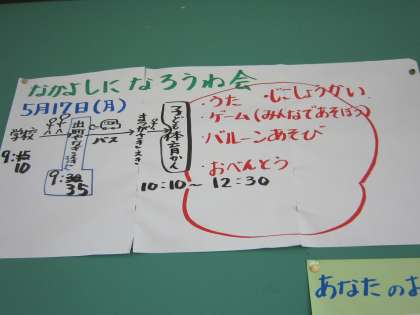 なかよしに なろうね会
5月17日(月)
学校
9:15
10
バス
9:30
35
こども体育かん
10:10〜 12:30
・うた じこしょうかい
・ゲーム(みんなであそぼう)
・バルーンあそび
・おべんとう
あなたのよ